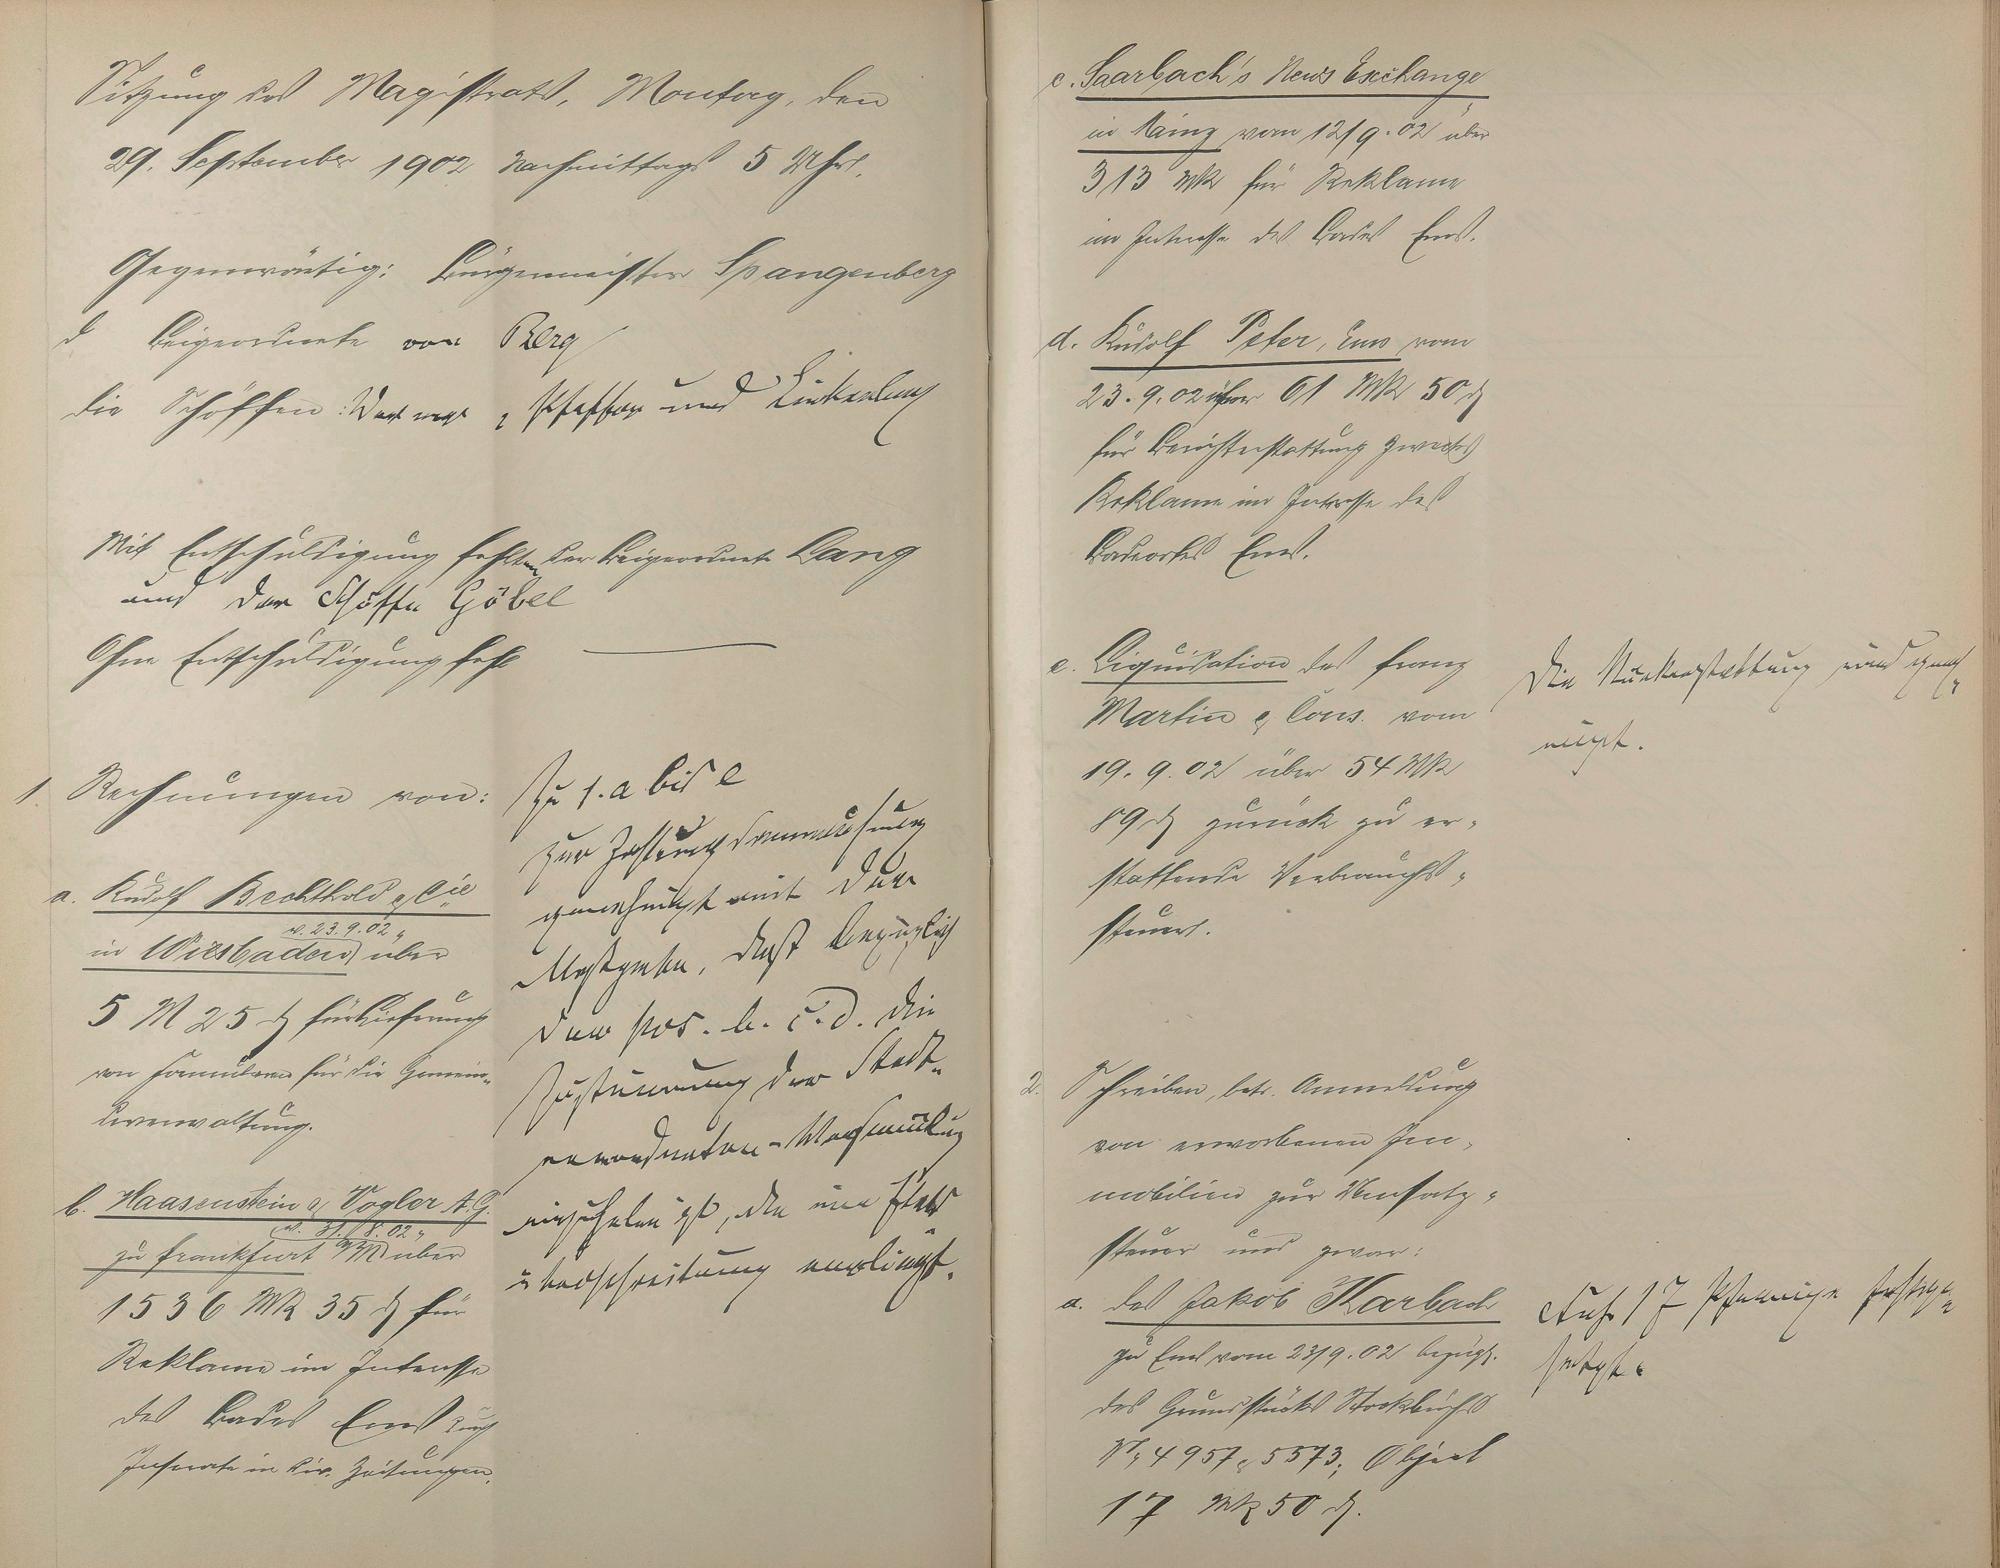 Sitzung des Magistrats, Montag, den
29. September 1902 Nachmittags 5 Uhr.
Gegenwärtig: Bürgermeister Spangenberg
d Beigeordnete von Berg
die Schöffen: , Pfeffer und Linkenbach
Mit Entschuldigung fehlten der Beigeordnete Lang
und der Schöffe Göbel
Ohne Entschuldigung fehlt
1. Rechnungen von:
a. Rudolf Bechthold & Cie
v. 23.9.02
in Wiesbaden über
5 M 25 ₰ für Lieferung
von Formularen für die Gemein-
deverwaltung.
b. Haasenstein & Vogler A.G.
v. 31/8.02
zu Frankfurt a/M über
1536 Mk 35 ₰ für
Reklame im Interesse
des Bades Ems durch
Inserate in div. Zeitungen.
Zu 1. a bis e
zur Zahlungsanweisung
genehmigt mit der
Maßgabe, daß bezüglich
der pos. b. c. d. die
Zustimmung der Stadt-
verordneten-Versammlung
einzuholen ist, die eine Etats-
überschreitung vorliegt.
c. Saarbach's News Exchange
in Mainz vom 12/9.02 über
313 Mk für Reklame
im Interesse des Bades Ems.
d. Rudolf Peter, Ems vom
23.9.02 über 61 Mk 50 ₰
für Berichterstattung zwecks
Reklame im Interesse des
Badeortes Ems.
e. Liquidation des Franz
Martin & Cons. vom
19.9.02 über 54 Mk
89 ₰ zurück zu er-
stattende Verbrauchs-
steuer.
Die Rückerstattung wird geneh-
migt.
2. Schreiben, betr. Anmeldung
von erworbenen Im-
mobilien zur Umsatz-
steuer und zwar:
a. des Jakob Karbach
zu Ems vom 23/9.02 bezügl.
des Grundstücks Stockbuchs
Nr. 4957 & 5573; Object
17 Mk 50 ₰.
Auf 17 Pfennige festge-
setzt.